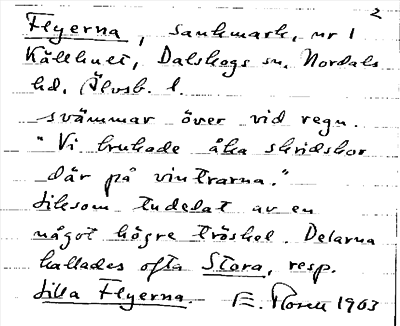 2
Flyerna, sankmark, nr 1
Källhult, Dalskogs sn, Nordals
hd, Älvsb. l.
svämmar över vid regn.
"Vi brukade åka skridskor
där på vintrarna."
Liksom tudelat av en
något högre tröskel. Delarna
kallades ofta Stora, resp.
Lilla Flyerna. E. Rosell 1963